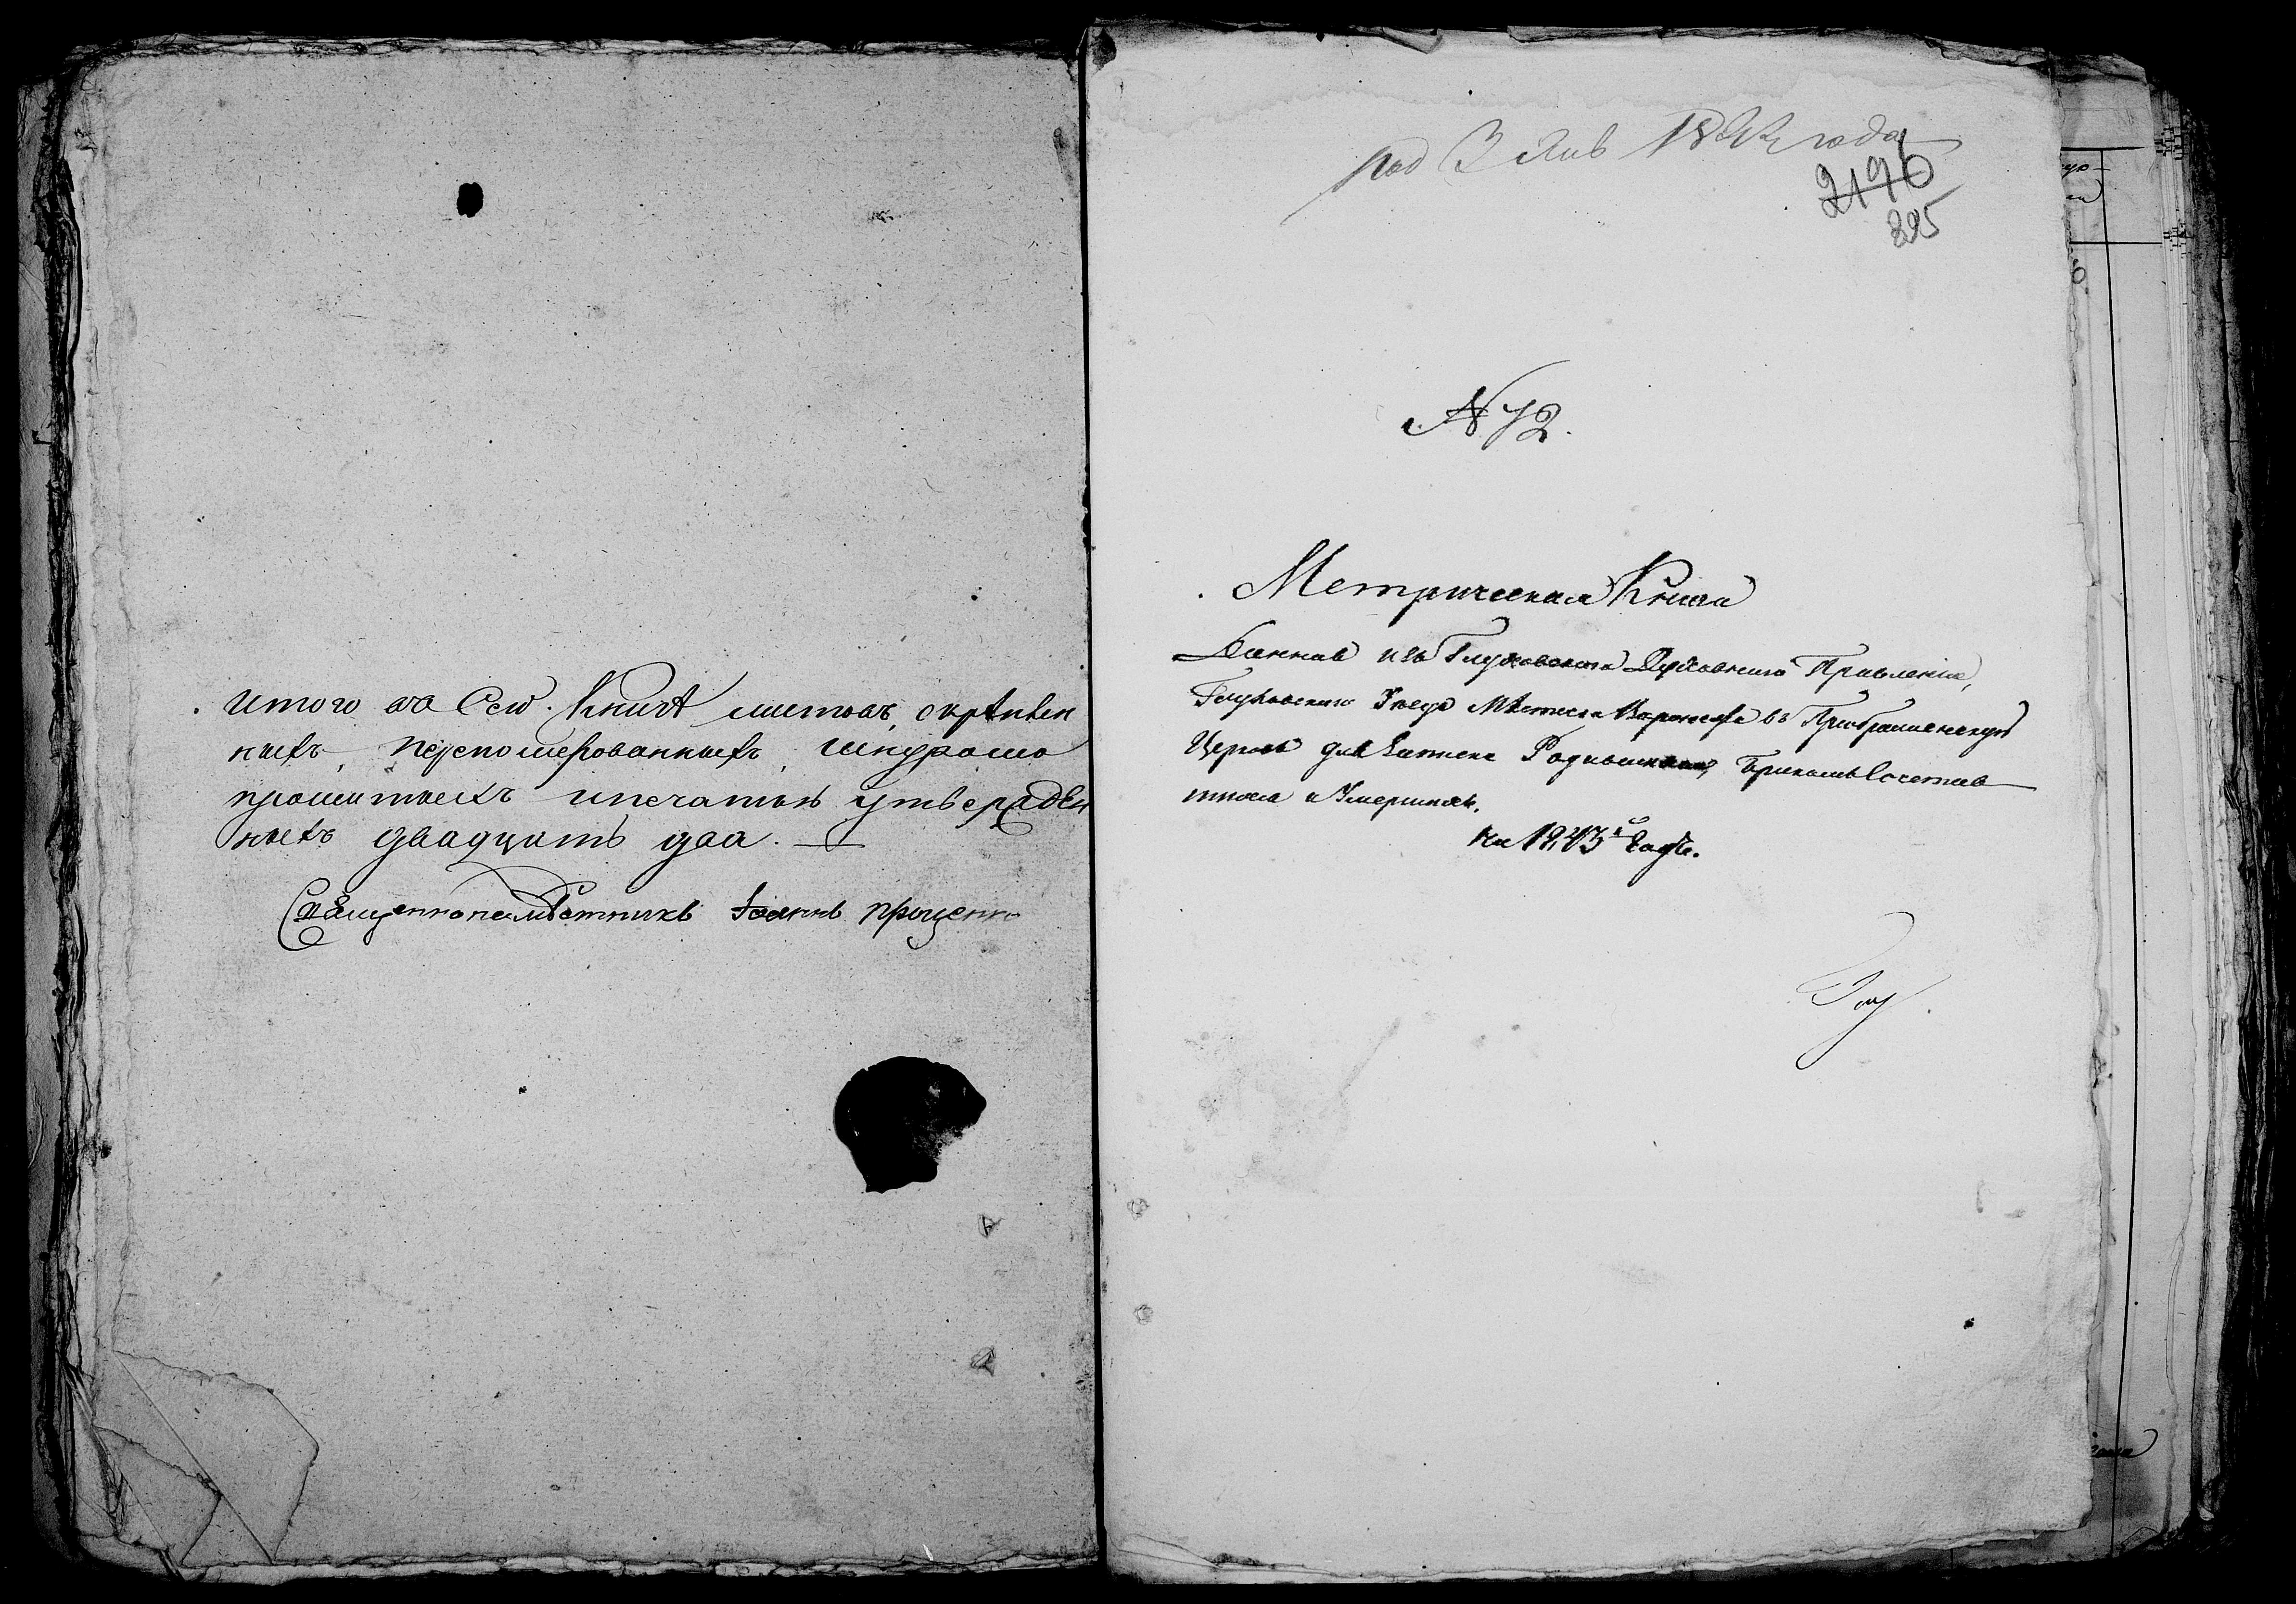 Итого въ Сей Книгѣ листовъ, скрѣплен
ныхъ, перенолмерованныхъ, шнуромъ
прошитыхъ ипечатью утвержден
ныхъ двадцать два.
Священнонамѣстникъ Іоаннъ Проценко
1844 года
2196
395
N 72.
Метрическая Книга
Данная изъ Глуховскаго Духовнаго Правленія,
Глуховскаго Уезда Мѣстечка Воронежа въ Преображенскую
Церковь для Записки Родившихся, Бракомъ Сочетав
шихся и Умершихъ.
на 1843й Годъ.